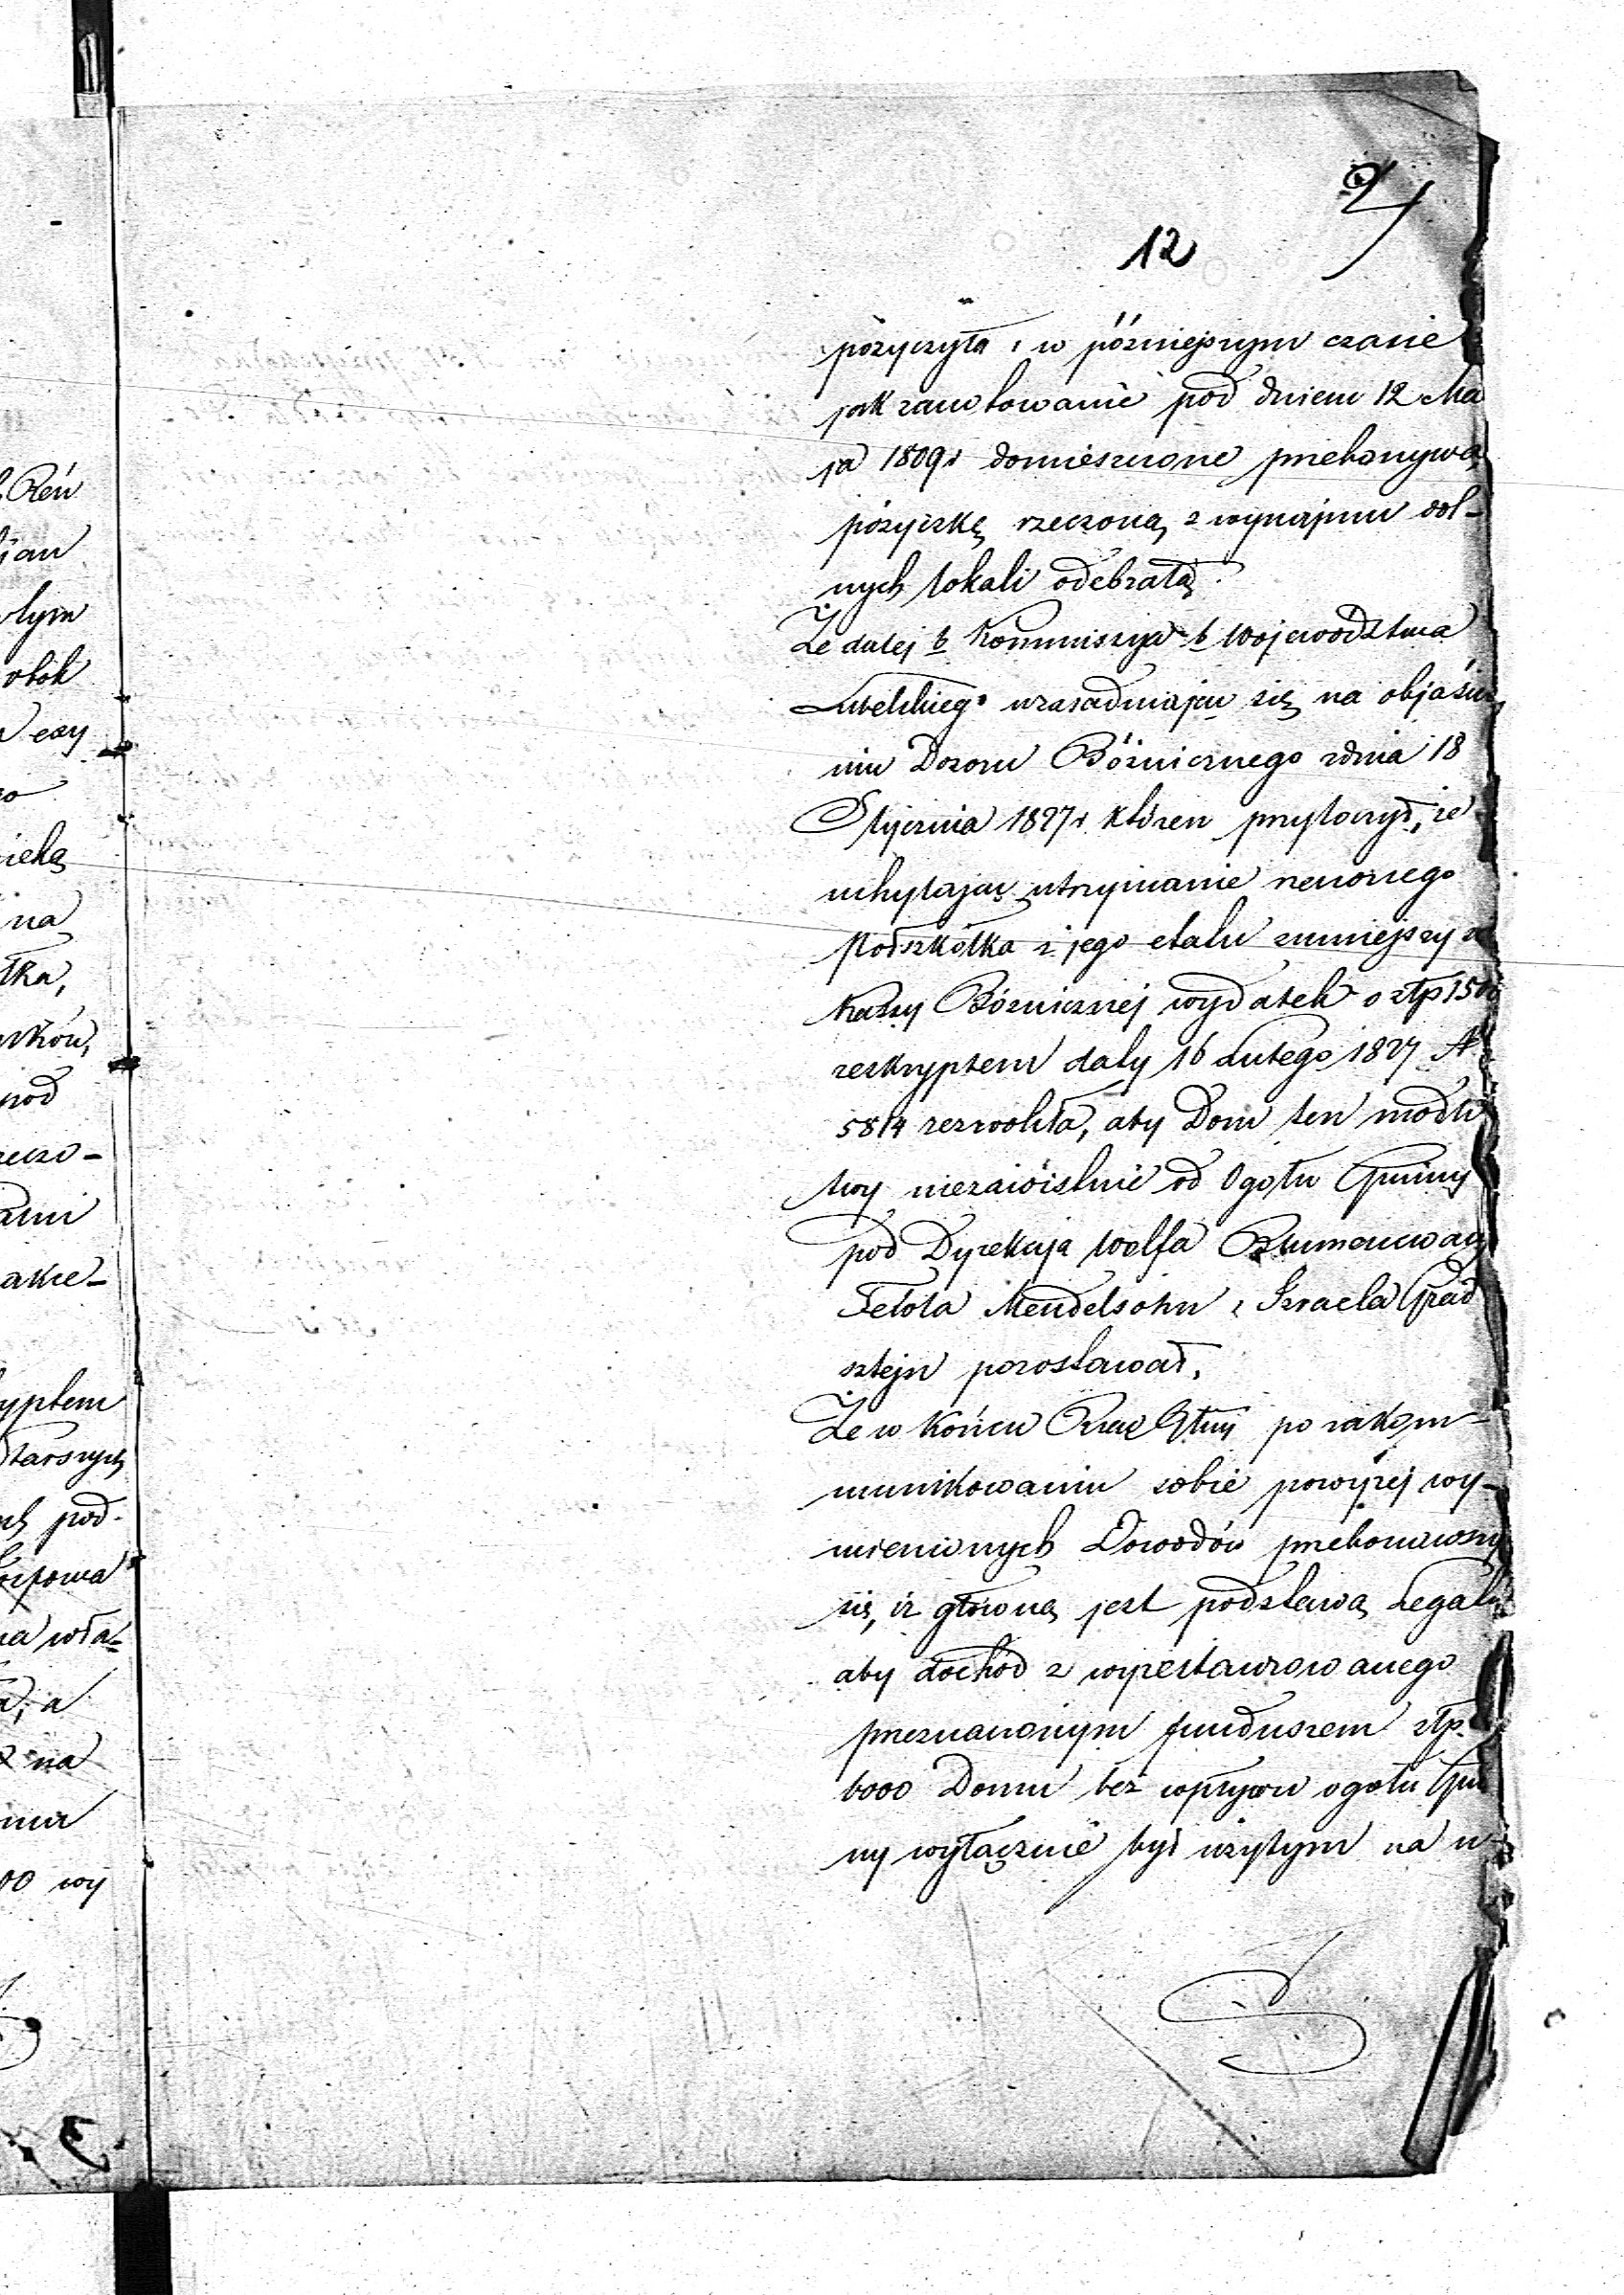 12
pożyczyła i w późniejszym czasie
jak zanotowanie pod dniem 12 Ma
ja 1809 r domieszczone przekonywa
pożyczkę rzeczoną z wynajmu dol-
nych lokali odebrała.
Że dalej b Kommissya b Wojewodztwa
Lubelskiego uzasadniając się na objaśnie
niu Dozoru Bóżnicznego z dnia 18
Stycznia 1827 r któren przytoczył, że
uchylając utrzymanie rzeczonego
Podszkólka z jego etatu zmniejszy się
Kassy Bóźnicznej wydatek o złp 150
reskryptem daty 16 Lutego 1827 N
5814 zezwoliła, aby Dom ten modli
twy niezawiślnie od Ogółu Gminy
pod Dyrekcją Wolfa
Mendelsohn i Izraela Grad
sztejn pozostawał.
Że w Końcu Rząd Gbny po zakom-
munikowaniu sobie powyżej wy-
mienionych Dowodów przekonawszy
się, iż główną jest podstawą Legalną
aby dochód z wyrestaurowanego
przeznaczonym funduszem złp.
6000 Domu bez wpływu ogółu Gmi
ny wyłącznie był użytym na u-
Ren
jan
łym
obok
czy
na
łka,
pod
akie-
Starszych
pod-
na wła-
a
na
00 wy